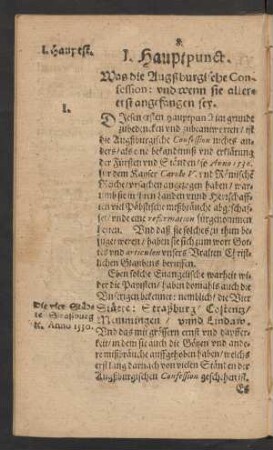 8.
I. Hauptst.
I. Hauptpunct.
Was die Augßburgische Con-
fession: vnd wenn sie aller-
erst angefangen sey.
I.
Diesen ersten hauptpunct im grundt
zubedencken vnd zubeantworten / ist
die Augßburgische Confession nichts an-
ders / als ein bekandtnuß vnd erklärung
der Fürsten vnd Stände / so Anno 1530.
für dem Kayser Carolo V. vnd Römische
warumb sie in jren landen vnd Herrschaff-
ten viel Päbstische mißbräuche abgeschaf-
fet / vnd eine reformation fürgenommen
Vnd daß sie solches zu thun be-
füget weren / haben sie sich zum wort Got-
tes vnd articulen vnsers Vralten Christ-
lichen Glaubens beruffen.
Eben solche Euangelische warheit wi-
der die Papisten / haben domahls auch die
Vnserigen bekennet: nemblich / die Vier
Stätte: Straßburg / Costentz /
Memmingen / vnnd Lindaw.
Die vier Städ-
te Straßburg
&c. Anno 1530.
Vnd das mit grössern ernst vnd dapffer-
keit / in dem sie auch die Götzen vnd ande-
re mißbräuche auffgehoben haben / welchs
erst lang darnach von vielen Ständen der
Augßburgischen Confession geschehen ist.
Es